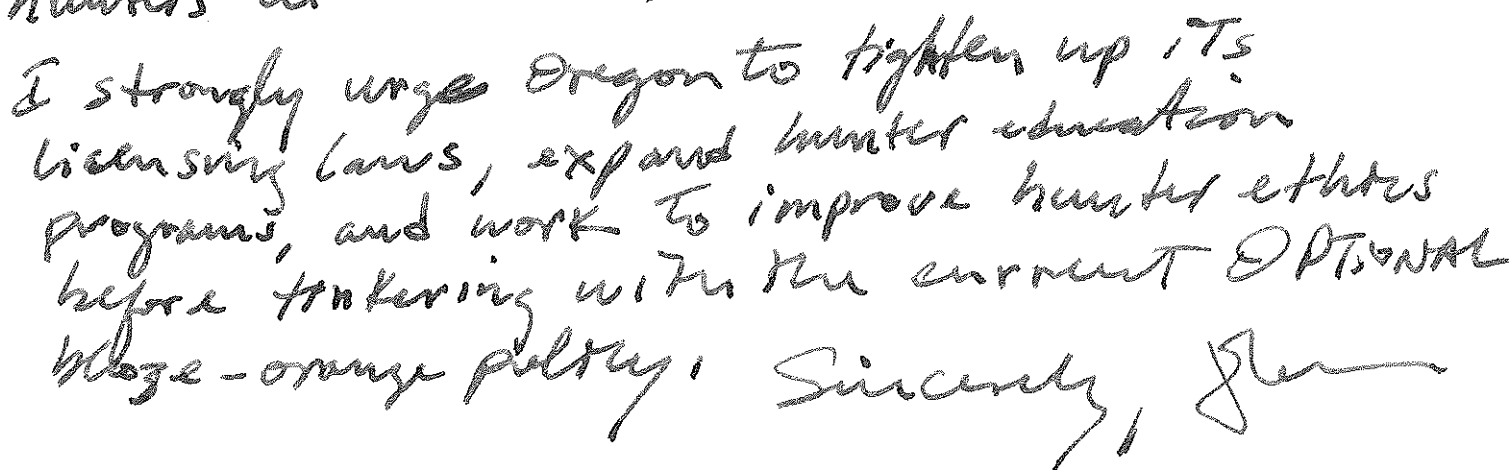 hunters
I strongly urge Oregon to tighten up its
licensing laws, expand hunter education
programs, and work to improve hunter ethics
before tinkering with the current OPTIONAL
blaze-orange policy. Sincerely,